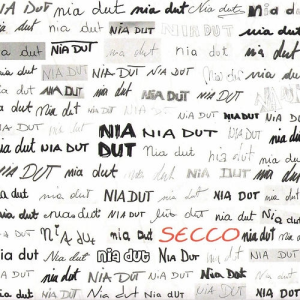 NIA DUT nia dut nia dut Nia dut nia dut
nia dut nia dut nia dut nia dut nia dut
nia dut NIA DUT nia dut nia dut nia dut
nia dut NIA DUT NIA DUT Nia dut nia dut
nia dut NIA DUT nia dut NIA DUT NIA DUT
nia dut nia dut nia dut nia dut
nia dut NIA DUT NIA DUT NIA DUT
nia dut NIA DUT Nia dut nia dut nia dut
NIA DUT nia dut NIA DUT nia dut
nia dut nia dut NIADUT nia dut NIA DUT
nia dut nia dut nia dut nia dut nia dut
nia dut nia dut SECCO nia dut
nia dut Nia dut nia dut NIA DUT nia dut
nia dut nia dut nia dut NIA Dut nia dut
NIA DUT nia dut nia dut nia dut